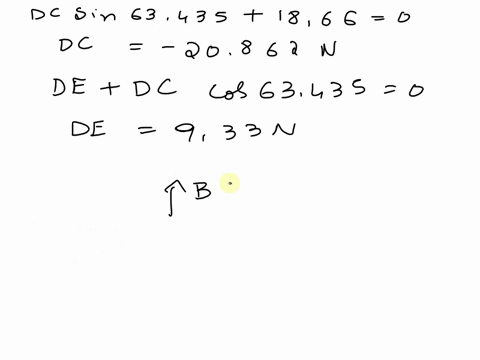 DC sin 63.435 + 18,66 = 0
DC = -20.862 N
DE + DC cos 63.435 = 0
DE = 9,33N
↑ B